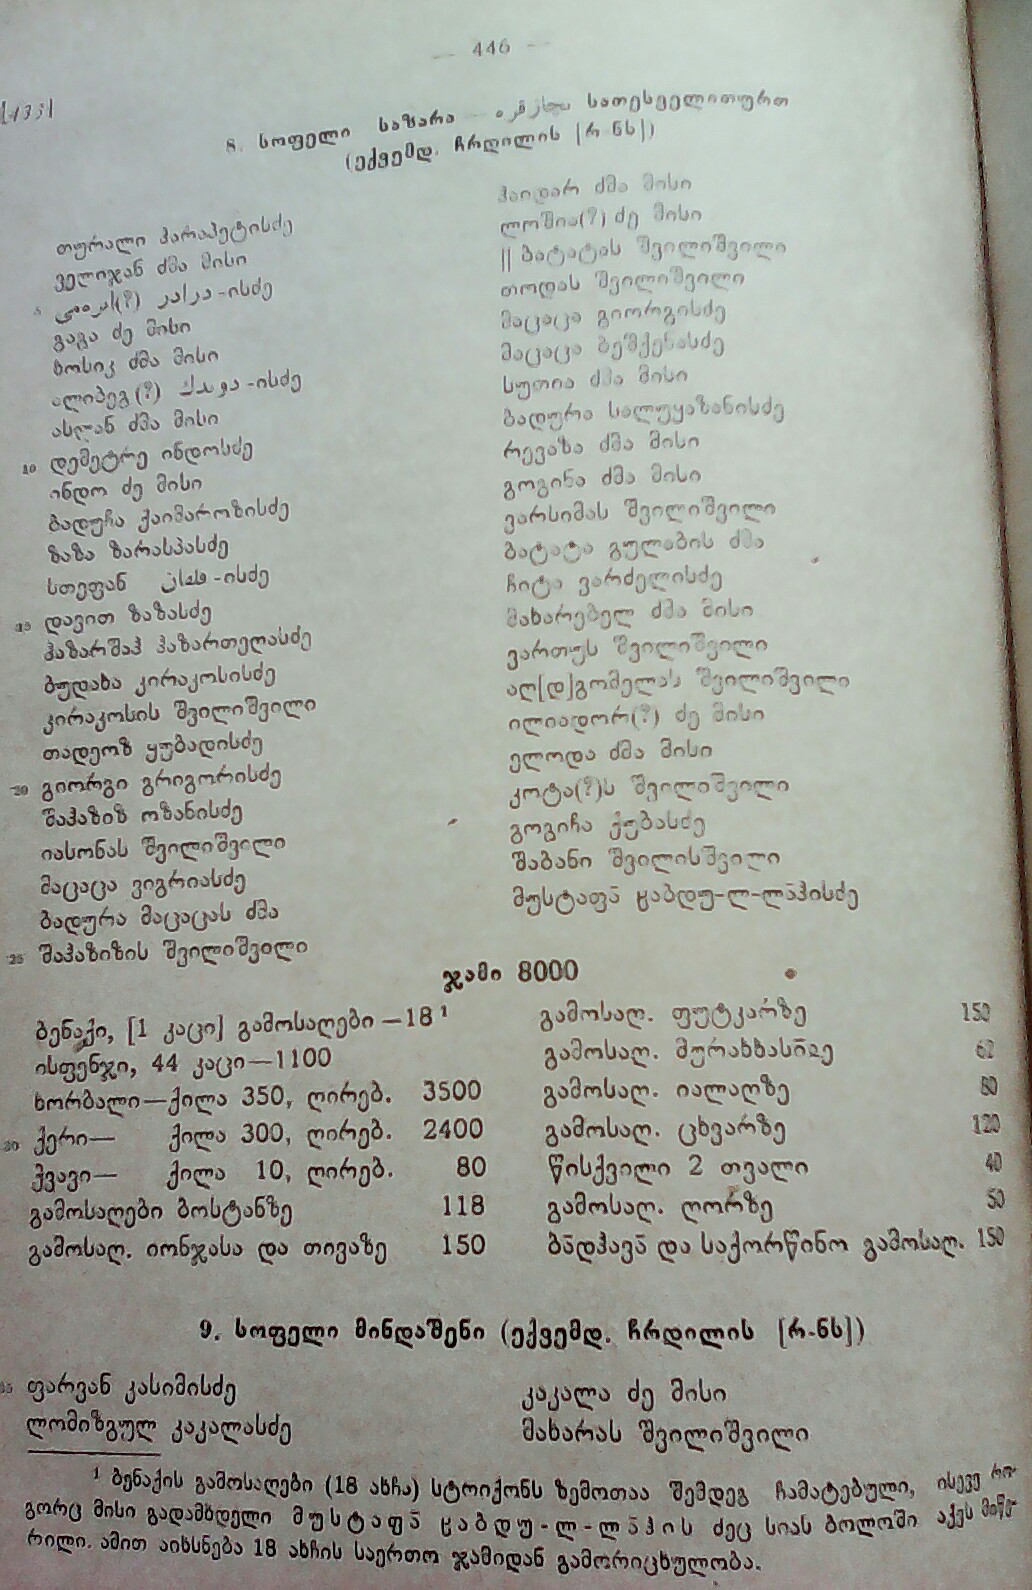 — 446 —
8. სოფელი საზარა სათესველითურთ
(ექვემდ. ჩრდილის [რ-ნს])
თურალი ჰარაპეტისძე
ველიჯან ძმა მისი
(?) -ისძე
გაგა ძე მისი
ბოსიკ ძმა მისი
ალიბეგ(?) -ისძე
ასლან ძმა მისი
10 დემეტრე ინდოსძე
ინდო ძე მისი
ბადუჩა ქაიმაროზისძე
ზაზა ზარასპასძე
სთეფან -ისძე
15 დავით ზაზასძე
ჰაზარშაჰ ჰაზართეღასძე
ბუდახა კირაკოსისძე
კირაკოსის შვილიშვილი
თადეოზ ყუბადისძე
20 გიორგი გრიგორისძე
შაჰაზიზ ოზანისძე
იასონას შვილიშვილი
მაცაცა ვიგრიასძე
ბადურა მაცაცას ძმა
25 შაჰაზიზის შვილიშვილი
ჰაიდარ ძმა მისი
ლოშია(?) ძე მისი
|| ბატატას შვილიშვილი
თოდას შვილიშვილი
მაცაცა გიორგისძე
მაცაცა ბეშქენასძე
სუთია ძმა მისი
ბადურა სალუყაზანისძე
რევაზა ძმა მისი
გოგინა ძმა მისი
ვარსიმას შვილიშვილი
ბატატა გულაბის ძმა
ჩიტა ვარძელისძე
მახარებელ ძმა მისი
ვართუს შვილიშვილი
აღ[დ]გომელას შვილიშვილი
ილიადორ(?) ძე მისი
ელოდა ძმა მისი
კოტა(?)ს შვილიშვილი
გოგიჩა ქუბასძე
შაბანი შვილისშვილი
მუსტაფა̄ ჸაბდუ-ლ-ლა̄ჰისძე
ჯამი 8000
ბენაქი, [1 კაცი] გამოსაღები —18¹
ისფენჯი, 44 კაცი—1100
ხორბალი—ქილა 350, ღირებ. 3500
30 ქერი— ქილა 300, ღირებ. 2400
ჭვავი— ქილა 10, ღირებ. 80
გამოსაღები ბოსტანზე 118
გამოსაღ. იონჯასა და თივაზე 150
გამოსაღ. ფუტკარზე 150
გამოსაღ. 62
გამოსაღ. იალაღზე 80
გამოსაღ. ცხვარზე 120
წისქვილი 2 თვალი 40
გამოსაღ. ღორზე 50
ბა̄დჰავა̄ და საქორწინო გამოსაღ. 150
9. სოფელი მინდაშენი (ექვემდ. ჩრდილის [რ-ნს])
ფარვან კასიმისძე
ლომიზგულ კაკალასძე
კაკალა ძე მისი
მახარას შვილიშვილი
¹ ბენაქის გამოსაღები (18 ახჩა) სტრიქონს ზემოთაა შემდეგ ჩამატებული, ისევე რო-
გორც მისი გადამხდელი მუსტაფა̄ ჸაბდუ-ლ-ლა̄ჰის ძეც სიას ბოლოში აქვს მიწე-
რილი. ამით აიხსნება 18 ახჩის საერთო ჯამიდან გამორიცხულობა.